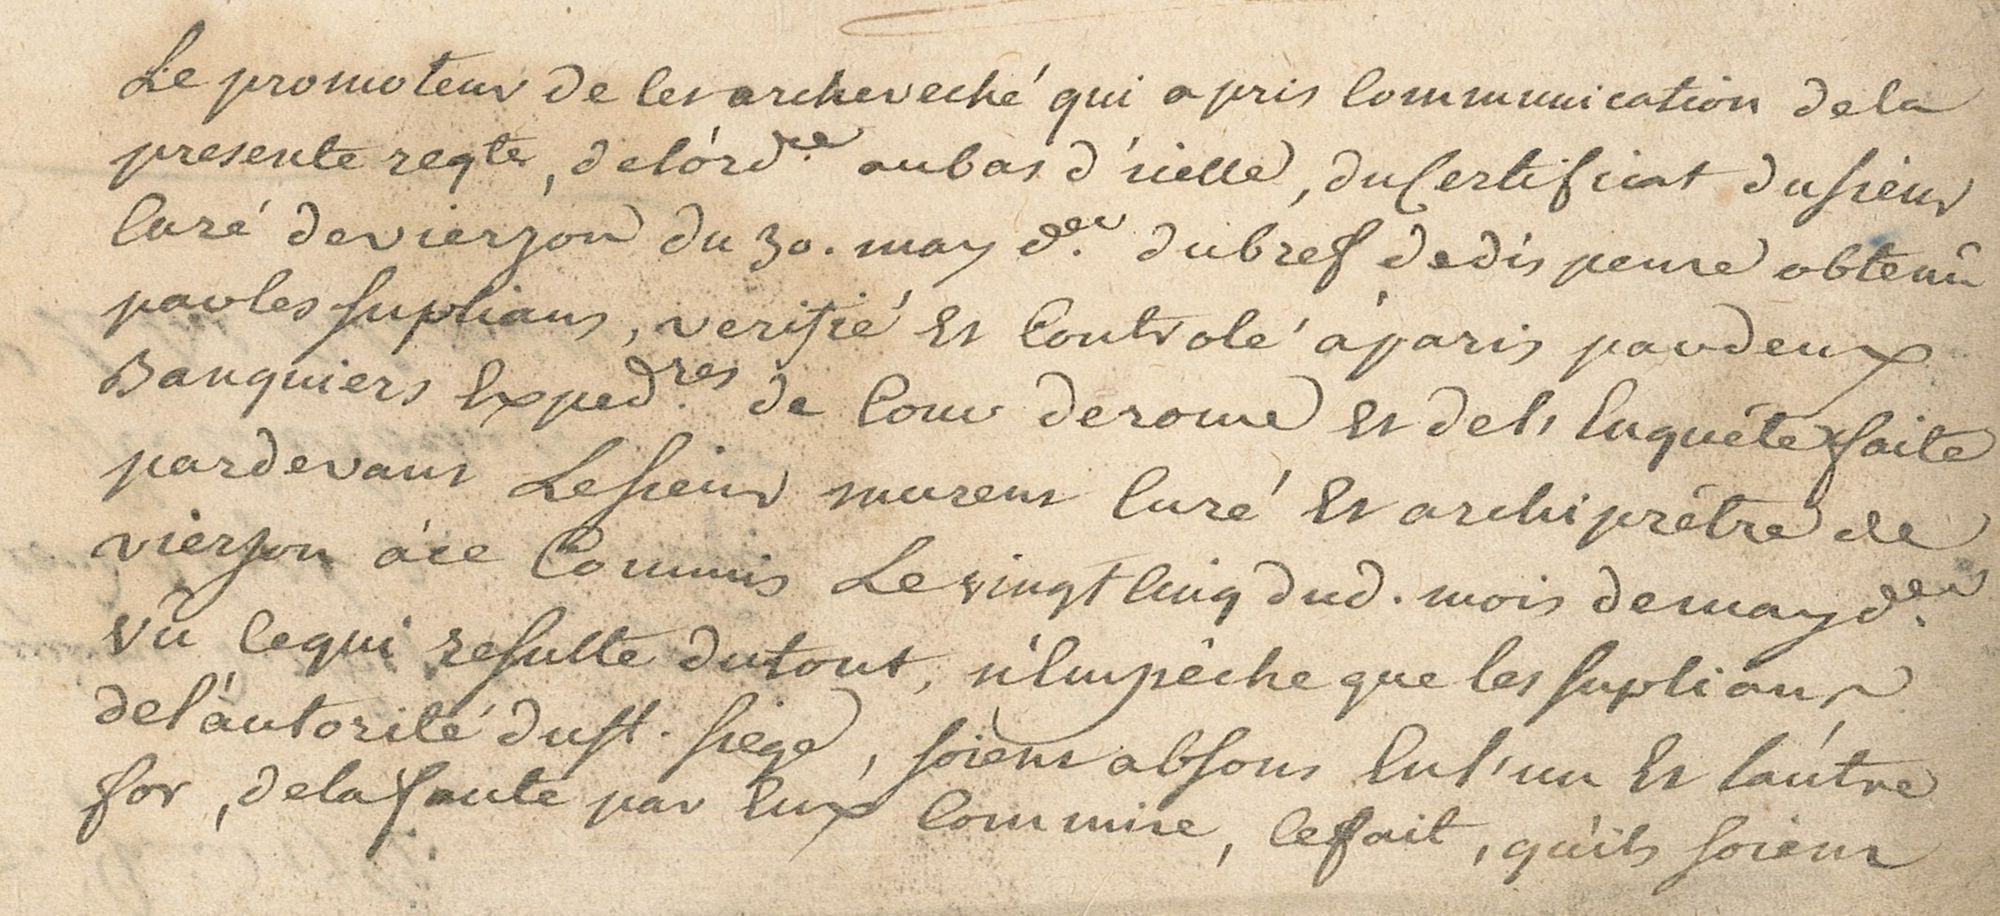 Le promoteur de cet archeveché qui a pris Communication de la
presente reqte, de l'ord.ce au bas d'icelle, du Certificat du sieur
Curé de vierzon du 30. may d.er du bref de dispense obtenû
par les suplians, verifié Et Controlé à paris par deux
Banquiers Exped.res de Cour de rome Et de l'Enquête faite
pardevant Le sieur Curé Et archiprêtre de
vierzon à ce Commis Le vingt Cinq dud. mois de may d.er
Vû Ce qui resulte du tout, n'Empêche que les suplians
de l'autorité du st. siege, soient absous En l'un Et l'autre
for, de la faute par Eux Commise, Ce fait, qu'ils soient